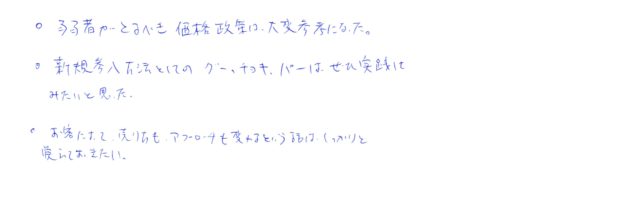 ○ 弱者がとるべき価格政策は、大変参考になった。
○ 新規参入方法としてのグー、チョキ、パーは、ぜひ実践して
みたいと思った。
○ お客によって、売り方も、アプローチも変わるという話は、しっかりと
覚えておきたい。